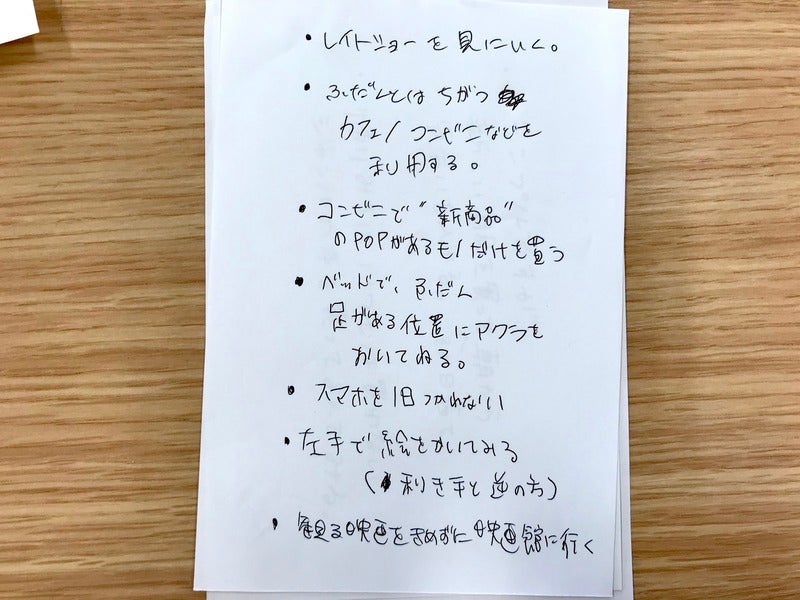 ・レイトショーを見にいく。
・ふだんとはちがう
カフェ/コンビニなどを
利用する。
・コンビニで"新商品"
のPOPがあるモノだけを買う
・ベッドで、ふだん
足がある位置にマクラを
おいてねる。
・スマホを1日つかわない
・左手で絵をかいてみる
(利き手と逆の方)
・観る映画をきめずに映画館に行く